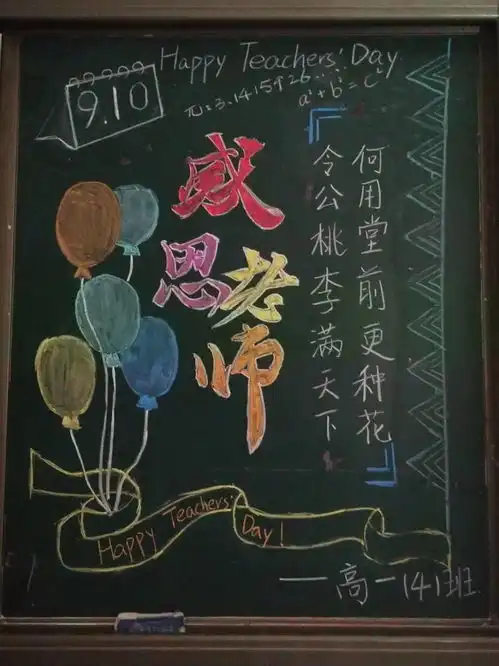 Happy Teachers' Day
9.10
π=3.1415926......
a²+b²=c²
感
恩老
师
令公桃李满天下
何用堂前更种花
Happy Teachers' Day!
——高一141班